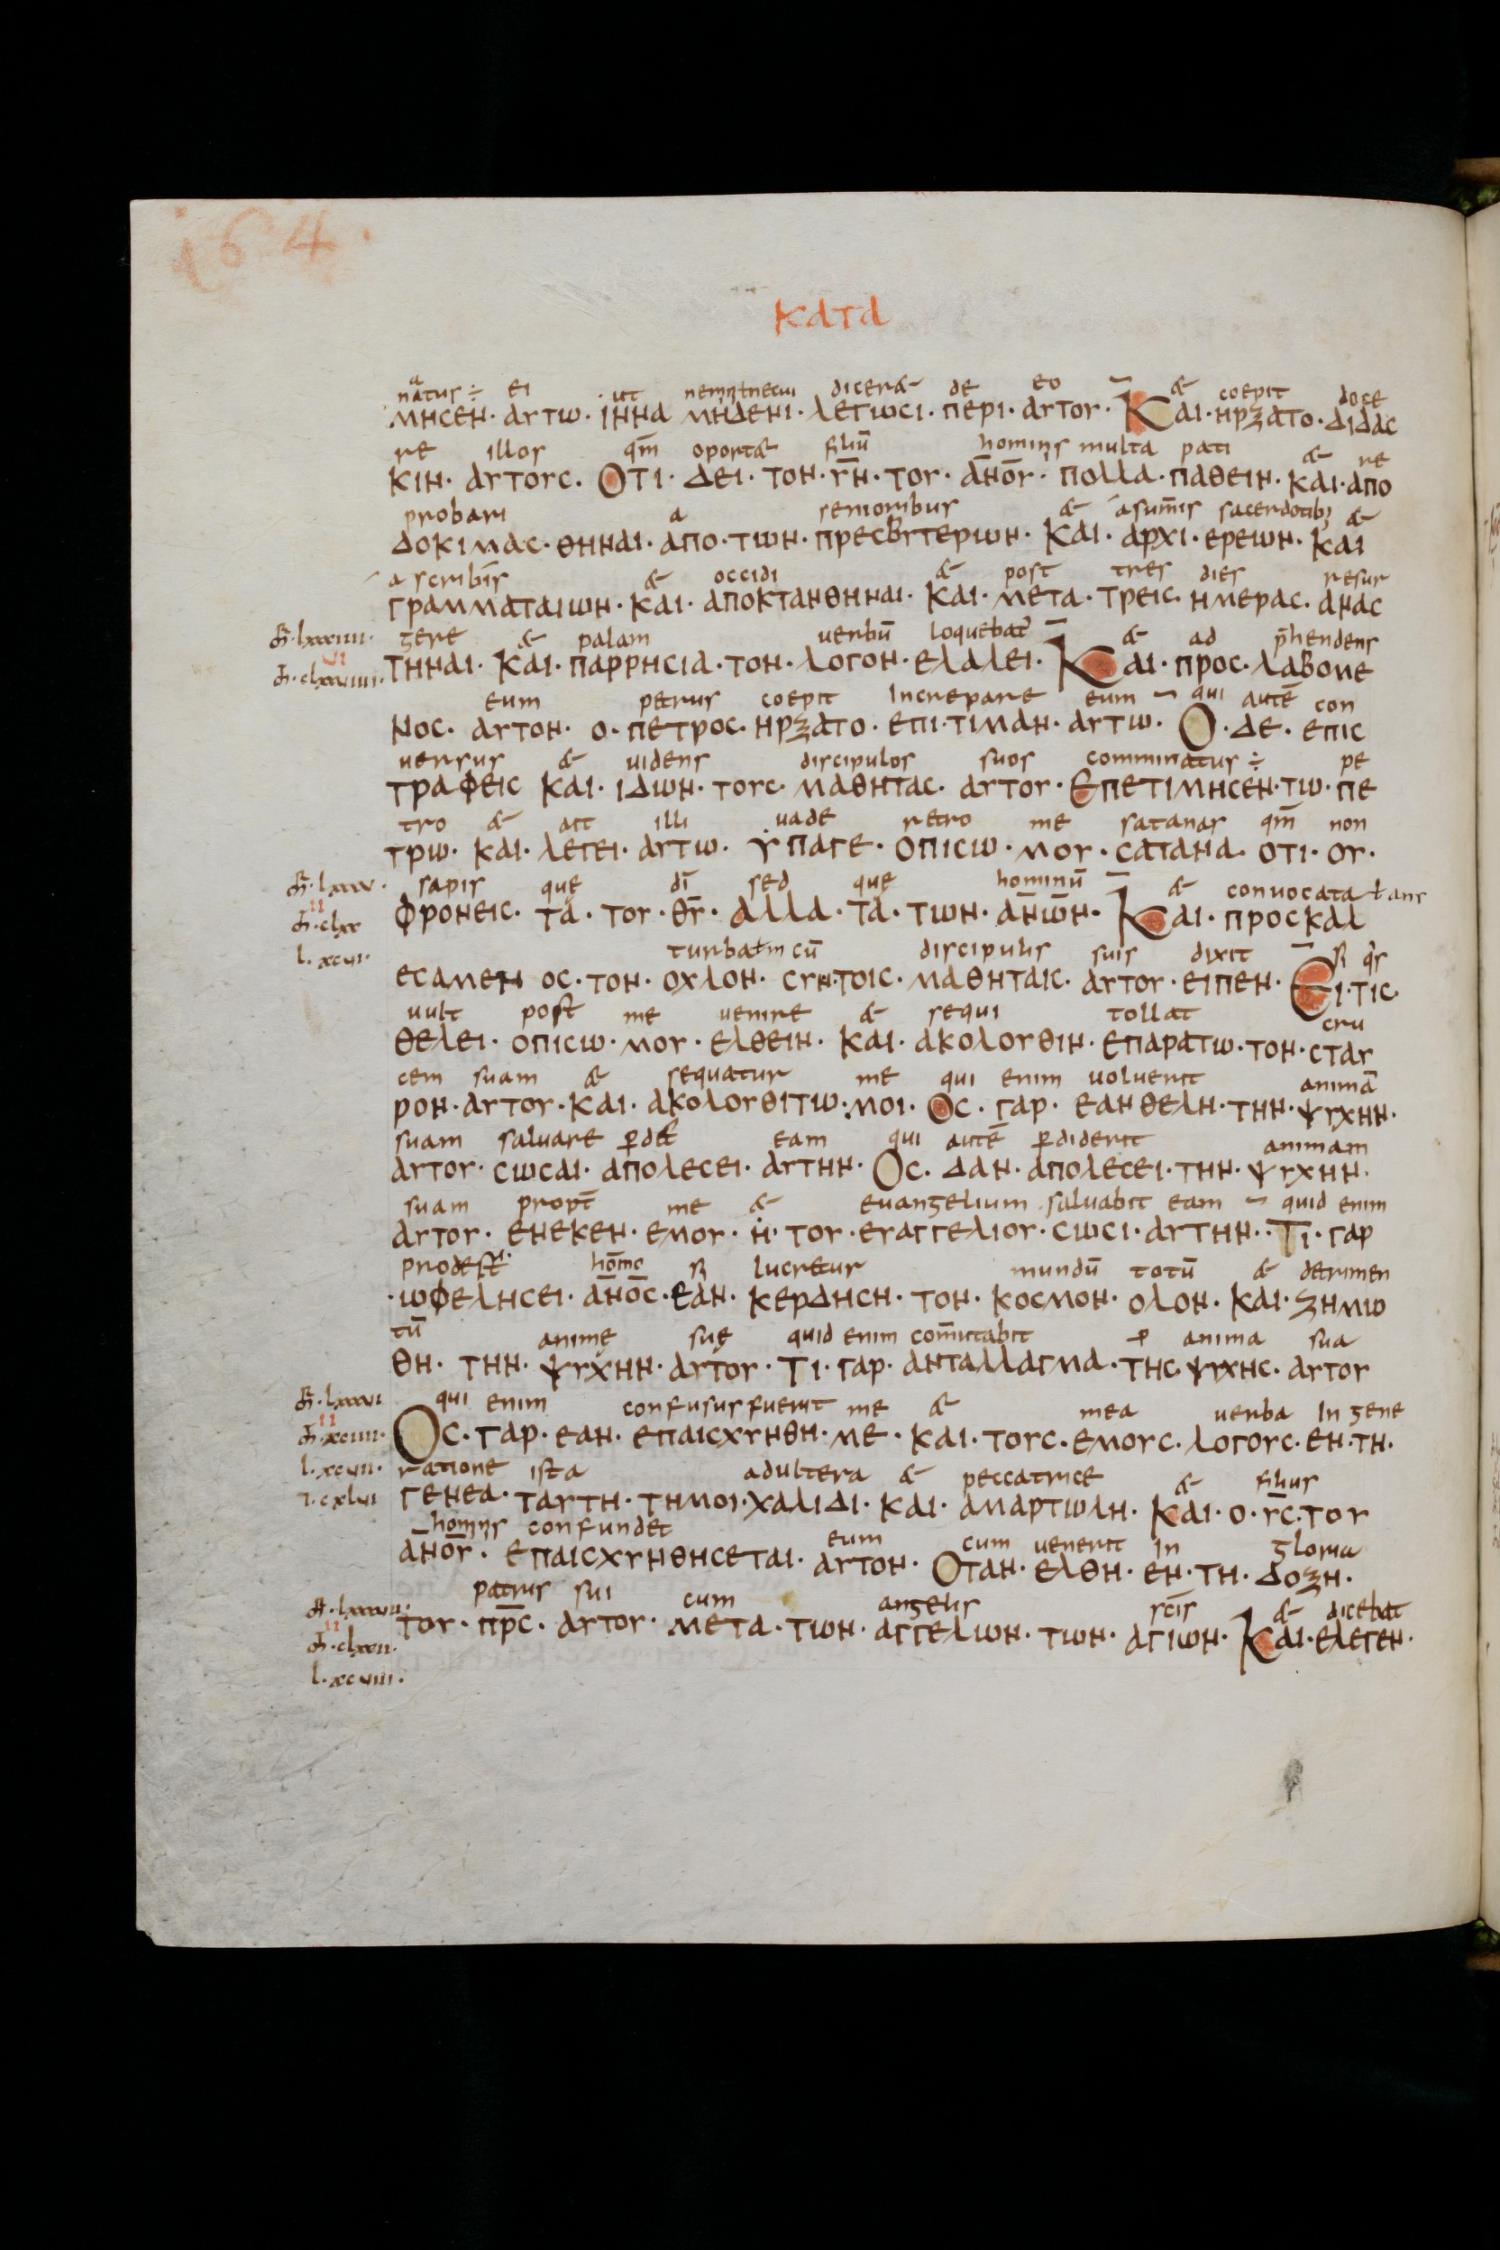 164.
ΚΑΤΑ
natus ÷ ei ut nemini dicerent de eo & coepit doce
ΜΗCΕΝ · ΑΥΤΩ · ΙΝΝΑ ΜΗΔΕΝΙ · ΛΕΓΩCΙ · ΠΕΡΙ · ΑΥΤΟΥ · ΚΑΙ · ΗΡΞΑΤΟ · ΔΙΔΑC
re illos qm̄ oportet filiū hominis multa pati & re
ΚΙΝ · ΑΥΤΟΥC · ΟΤΙ · ΔΕΙ · ΤΟΝ · Υ̅Ν̅ · ΤΟΥ · Α̅Ν̅Ο̅Υ̅ · ΠΟΛΛΑ · ΠΑΘΕΙΝ · ΚΑΙ · ΑΠΟ
probari a senioribus & a sum̄is sacerdotib; &
ΔΟΚΙΜΑC · ΘΗΝΑΙ · ΑΠΟ · ΤΩΝ · ΠΡΕCΒΥΤΕΡΙΩΝ · ΚΑΙ · ΑΡΧΙ · ΕΡΕΩΝ · ΚΑΙ
a scribis & occidi & post tres dies resur
ΓΡΑΜΜΑΤΑΙΩΝ · ΚΑΙ · ΑΠΟΚΤΑΝΘΗΝΑΙ · ΚΑΙ · ΜΕΤΑ · ΤΡΕΙC · ΗΜΕΡΑC · ΑΝΑC
gere & palam uerbū loquebat̄ & ad p̄hendens
ΤΗΝΑΙ · ΚΑΙ · ΠΑΡΡΗCΙΑ · ΤΟΝ · ΛΟΓΟΝ · ΕΛΑΛΕΙ · ΚΑΙ · ΠΡΟC · ΛΑΒΟΜΕ
eum petrus coepit increpare eum qui autē con
ΝΟC · ΑΥΤΟΝ · Ο · ΠΕΤΡΟC · ΗΡΞΑΤΟ · ΕΠΙ · ΤΙΜΑΝ · ΑΥΤΩ · Ο · ΔΕ · ΕΠΙC
uersus & uidens discipulos suos comminatus ÷ pe
ΤΡΑΦΕΙC ΚΑΙ · ΙΔΩΝ · ΤΟΥC · ΜΑΘΗΤΑC · ΑΥΤΟΥ · ΕΠΕΤΙΜΗCΕΝ · ΤΩ · ΠΕ
tro & ait illi uade retro me satanas qm̄ non
ΤΡΩ · ΚΑΙ · ΛΕΓΕΙ · ΑΥΤΩ · ΥΠΑΓΕ · ΟΠΙCΩ · ΜΟΥ · CΑΤΑΝΑ · ΟΤΙ · ΟΥ ·
sapis quę dī sed quę hominū & conuocata
ΦΡΟΝΕΙC · ΤΑ · ΤΟΥ · Θ̅Υ̅ · ΑΛΛΑ · ΤΑ · ΤΩΝ · Α̅Ν̅Ω̅Ν̅ · ΚΑΙ · ΠΡΟCΚΑΛ
turba cū discipulis suis dixit si q̇s
ΕCΑΜΕΝ ΟC · ΤΟΝ · ΟΧΛΟΝ · CΥΝ · ΤΟΙC · ΜΑΘΗΤΑΙC · ΑΥΤΟΥ · ΕΙΠΕΝ · ΕΙ · ΤΙC ·
uult post me uenire & sequi tollat cru
ΘΕΛΕΙ · ΟΠΙCΩ · ΜΟΥ · ΕΛΘΕΙΝ · ΚΑΙ · ΑΚΟΛΟΥΘΙΝ · ΕΠΑΡΑΤΩ · ΤΟΝ · CΤΑΥ
cem suam & sequatur me qui enim uoluerit animā
ΡΟΝ · ΑΥΤΟΥ · ΚΑΙ · ΑΚΟΛΟΥΘΙΤΩ · ΜΟΙ · ΟC · ΓΑΡ · ΕΑΝ ΘΕΛΗ · ΤΗΝ · ΨΥΧΗΝ ·
suam saluare eam qui autē p̱diderit animam
ΑΥΤΟΥ · CΩCΑΙ · ΑΠΟΛΕCΕΙ · ΑΥΤΗΝ · ΟC · ΔΑΝ · ΑΠΟΛΕCΕΙ · ΤΗΝ · ΨΥΧΗΝ ·
suam propt̄ me & euangelium saluabit eam quid enim
ΑΥΤΟΥ · ΕΝΕΚΕΝ · ΕΜΟΥ · Η · ΤΟΥ · ΕΥΑΓΓΕΛΙΟΥ · CΩCΙ · ΑΥΤΗΝ · ΤΙ · ΓΑΡ
prodest si lucretur mundū totū & detrimen
· ΩΦΕΛΗCΕΙ · Α̅Ν̅Ο̅C̅ · ΕΑΝ · ΚΕΡΔΗCΗ · ΤΟΝ · ΚΟCΜΟΝ · ΟΛΟΝ · ΚΑΙ · ΞΗΜΙΩ
tū animę suę quid enim com̄utabit p anima sua
ΘΗ · ΤΗΝ · ΨΥΧΗΝ · ΑΥΤΟΥ · ΤΙ · ΓΑΡ · ΑΝΤΑΛΛΑΓΜΑ · ΤΗC ΨΥΧΗC · ΑΥΤΟΥ
qui enim confusus fuerit me & mea uerba in gene
ΟC · ΓΑΡ · ΕΑΝ · ΕΠΑΙCΧΥΝΘΗ · ΜΕ · ΚΑΙ · ΤΟΥC · ΕΜΟΥC · ΛΟΓΟΥC · ΕΝ · ΤΗ ·
ratione ista adultera & peccatrice & filius
ΓΕΝΕΑ · ΤΑΥΤΗ · ΤΗ ΜΟΙ · ΧΑΛΙΔΙ · ΚΑΙ · ΑΜΑΡΤΩΛΗ · ΚΑΙ · Ο · Υ̅C̅ · ΤΟΥ
hominis confundet eum cum uenerit in gloria
Α̅Ν̅Ο̅Υ̅ · ΕΠΑΙCΧΥΝΘΗCΕΤΑΙ · ΑΥΤΟΝ · ΟΤΑΝ · ΕΛΘΗ · ΕΝ · ΤΗ · ΔΟΞΗ ·
patris sui cum angelis scīs & dicebat
ΤΟΥ · Π̅Ρ̅C̅ · ΑΥΤΟΥ · ΜΕΤΑ · ΤΩΝ · ΑΓΓΕΛΙΩΝ · ΤΩΝ · ΑΓΙΩΝ · ΚΑΙ · ΕΛΕΓΕΝ ·
l · xcvi ·
l · xcvii ·
l · xcviii ·